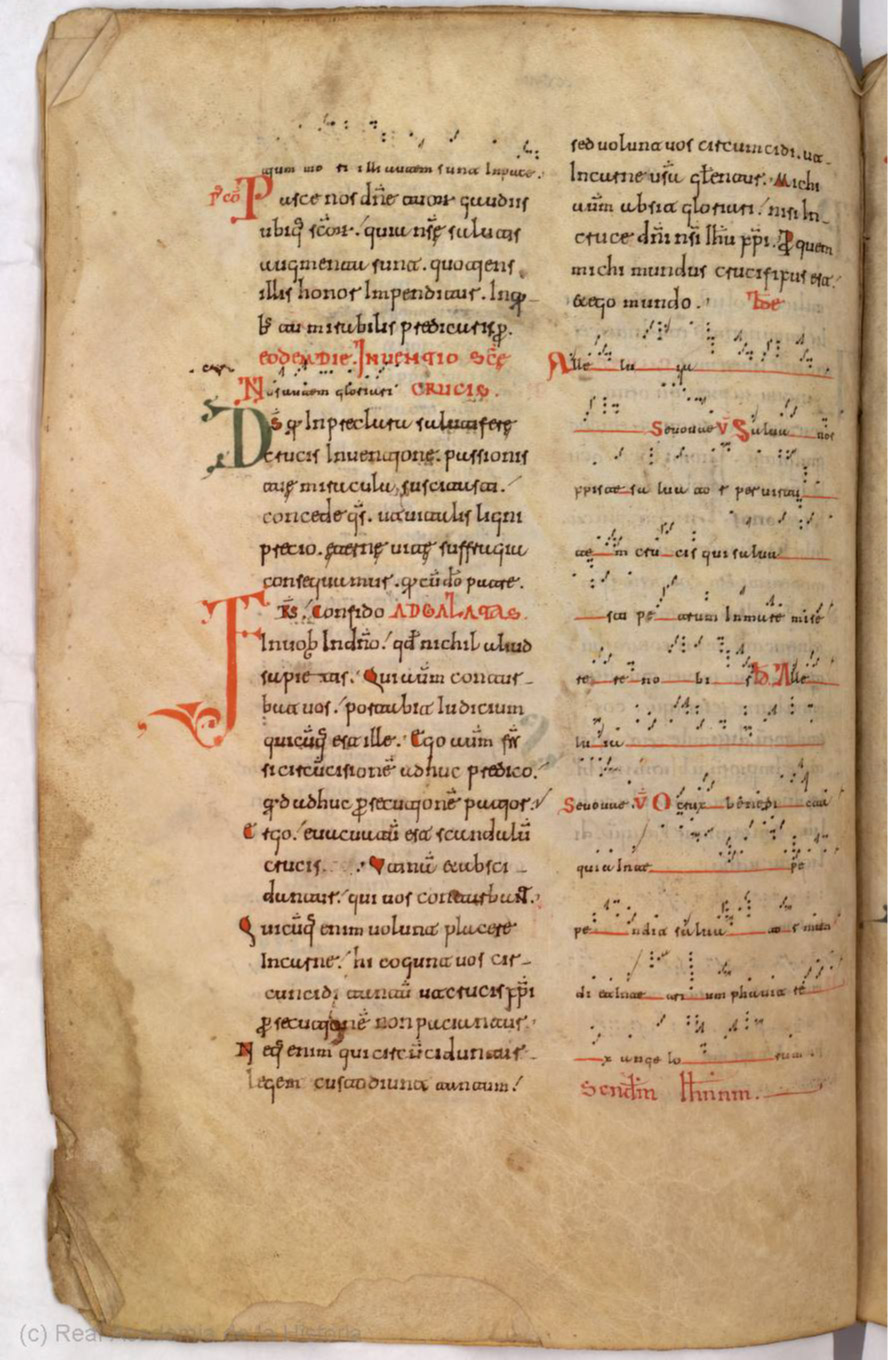 Pasce nos dñe
ubiq̄ scōꝝ. quia nr̄ę salutis
augmenta sunt. quotiens
illis honor Inpenditur. In q̄
mirabilis predicaris. p̄.
EODEM DIE. INVENTIO SC̄Ę
Nos autem gloriari CRUCIS.
D̄s q̄ In preclara salutifere
crucis Inuentione. passionis
tuę miracula suscitasti.
concede q̄s. ut uitalis ligni
precio. ęternę uitę suffragia
consequamur. q̄ cū dō patre.
Fr̄s. Confido AD GALATAS.
In uob̄ In dño. qđ nichil aliud
sapietis. Qui aūm contur-
bat uos. portabit Iudicium
quicūq̄ est ille. Ego aūm fr̄s
si circūcisionē adhuc predico.
qđ adhuc p̄secutionē patior.
Ergo. euacuatū est scandalū
crucis. Utinā et absci-
dantur. qui uos conturbant.
Quicūq̄ enim uolunt placere
In carne. hi cogunt uos cir-
cuncidi tantū ut crucis xp̄i
p̄secutionē non patiantur.
Neq̄ enim qui circūciduntur
legem custodiunt tantum.
sed uolunt uos circumcidi. ut
In carne ur̄a gl̄entur. Michi
aūm absit gloriari. nisi In
cruce dñi nr̄i Ih̄u xp̄i. P̄ quem
michi mundus crucifixus est.
et ego mundo.
Alle lu ya
Seuouae V̄ Salua nos
xp̄iste sal ua to r per uirtu
te m cru cis qui salua
sti pe trum In mare mise
re re no bi s Alle
lu ia
Seuouae. V̄ O crux benedi cta
quia In te pe
pe ndit salua to r mun
di et In te tri um phauit re
x ange lo rum